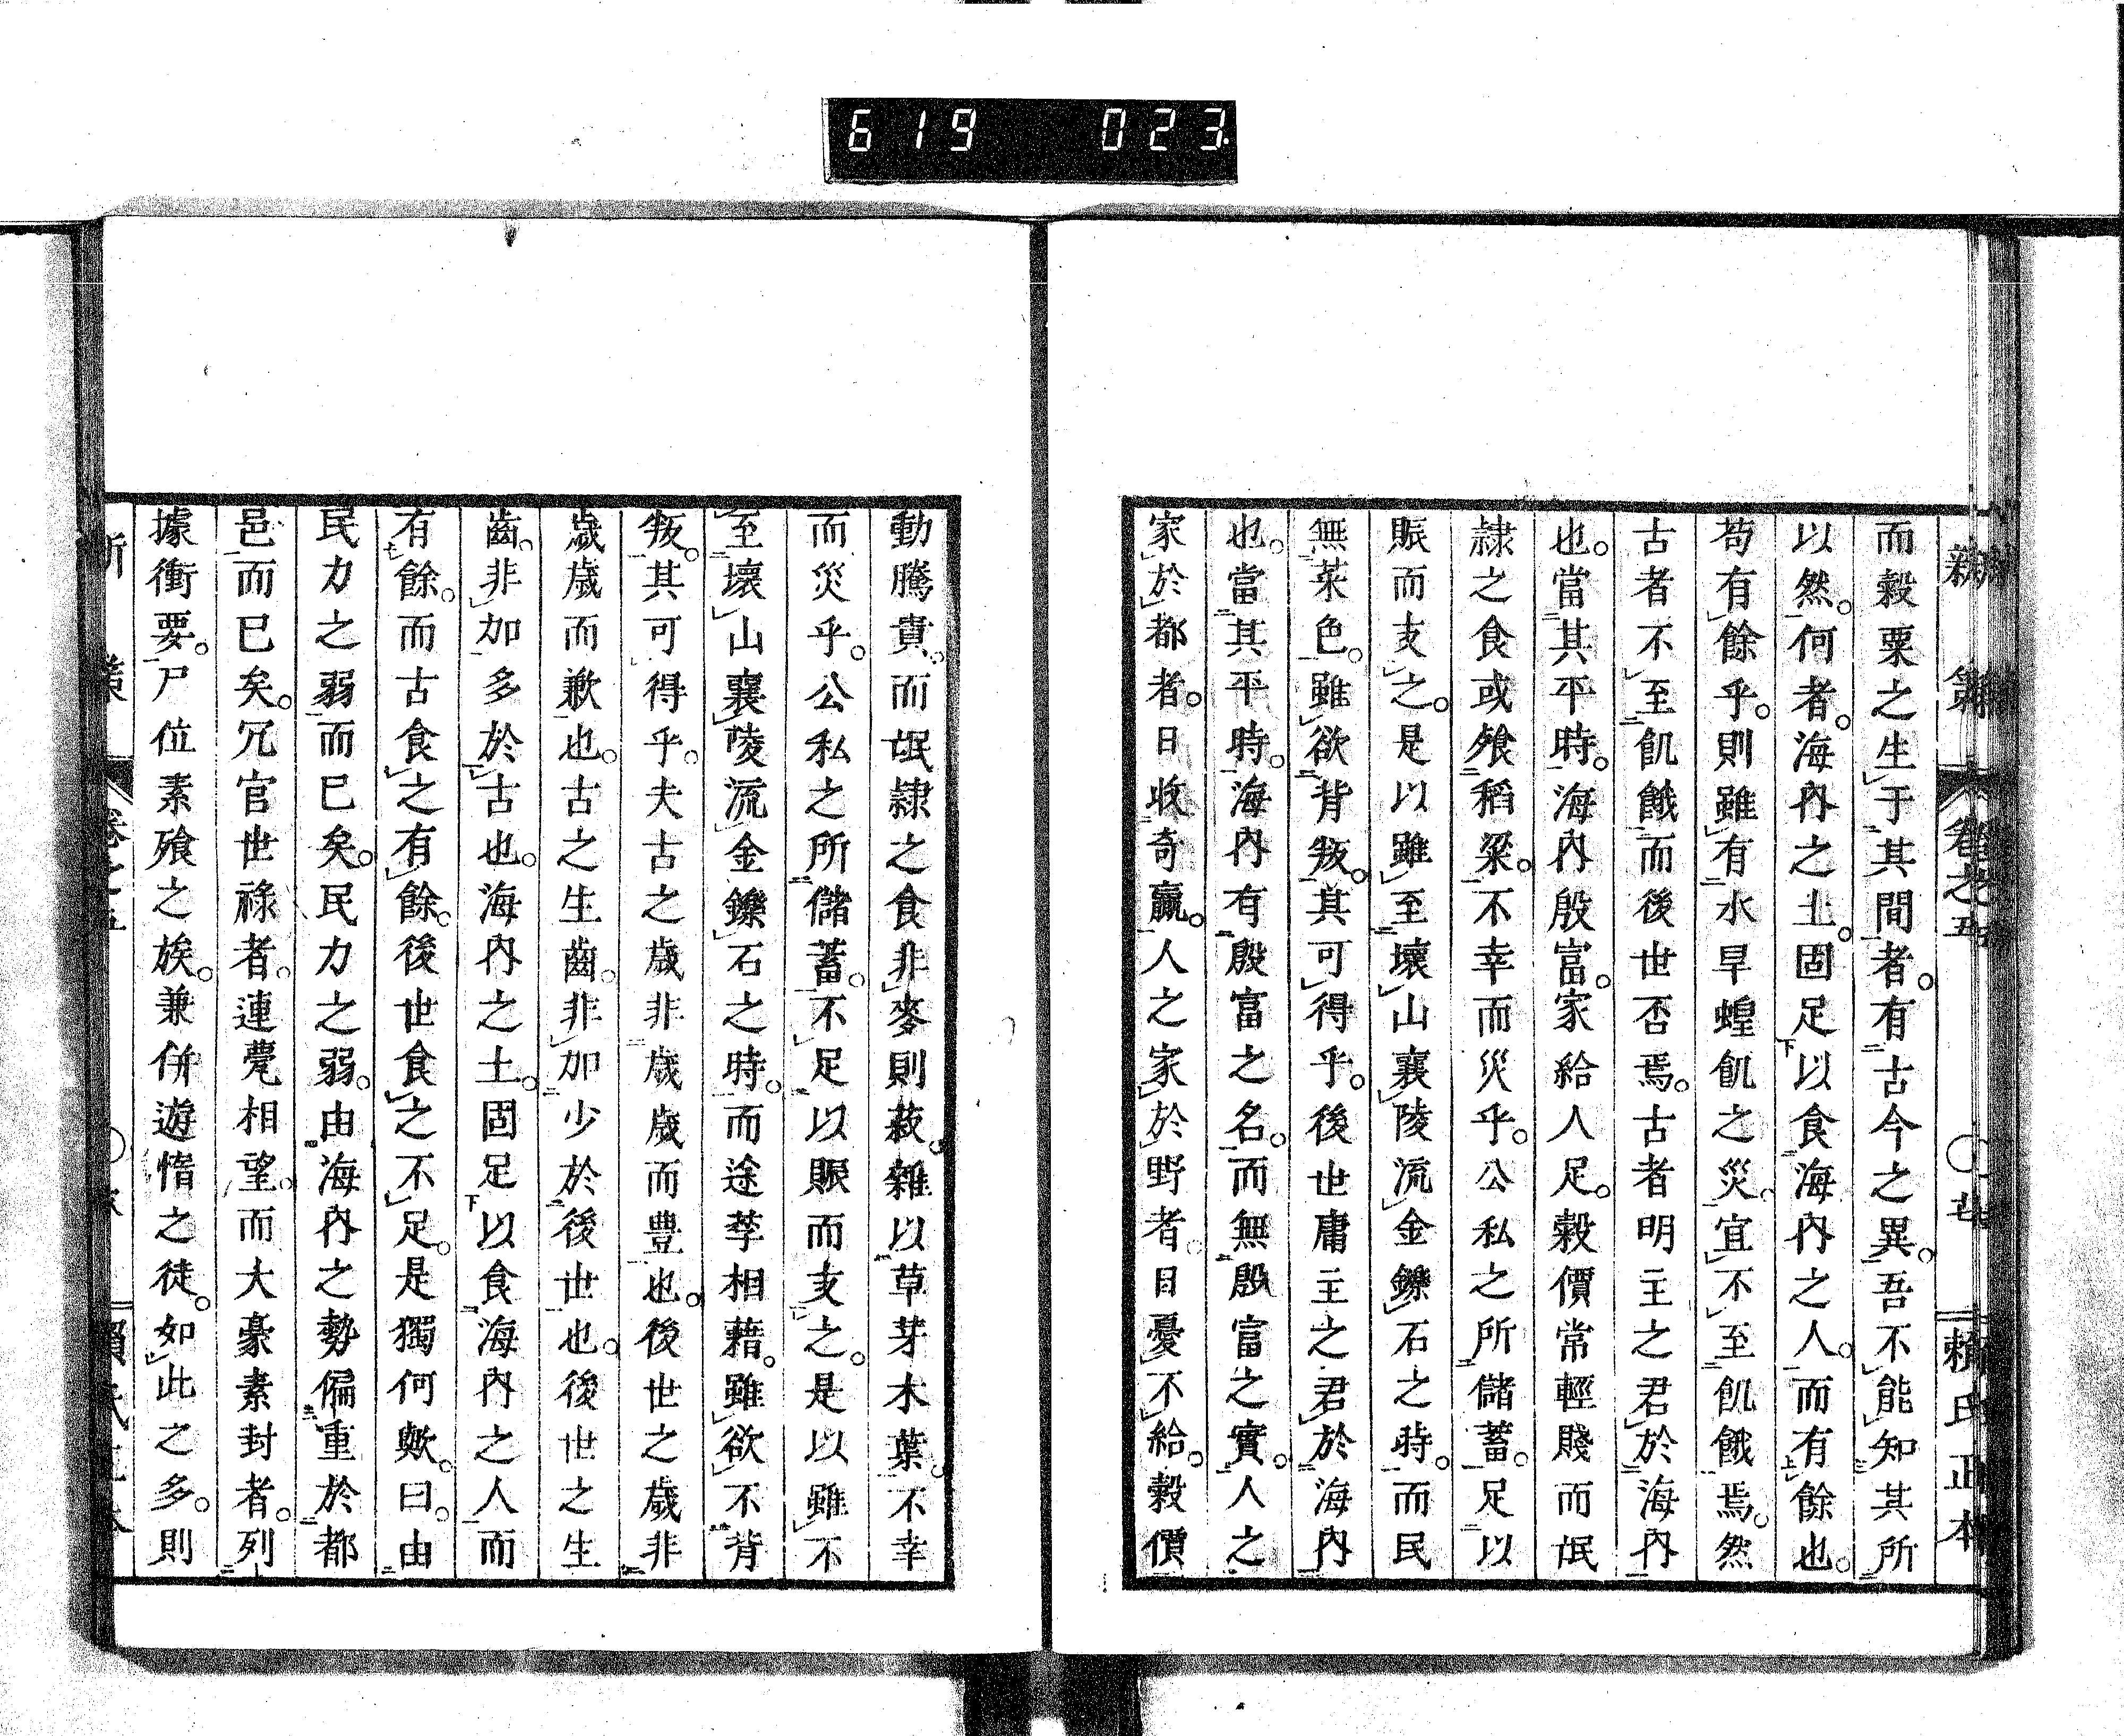 619 023
而穀粟之生于其間者。有古今之異。吾不能知其所
以然。何者。海內之土。固足以食海內之人。而有餘也。
苟有餘乎。則雖有水旱蝗飢之災。宜不至飢餓焉。然
古者不至飢餓而後世否焉。古者明主之君於海內
也。當其平時。海內殷富。家給人足。穀價常輕賤而氓
隷之食或飧稻粱。不幸而災乎。公私之所儲蓄。足以
賑而支之。是以雖至壞山襄陵流金鑠石之時。而民
無菜色。雖欲背叛。其可得乎。後世庸主之君於海內
也。當其平時。海內有殷富之名。而無殷富之實。人之
家於都者。日收奇贏。人之家於野者。日憂不給。穀價
動騰貴。而氓隷之食非麥則菽。雜以草芽木葉。不幸
而災乎。公私之所儲蓄。不足以賑而支之。是以雖不
至壞山襄陵流金鑠石之時。而途莩相藉。雖欲不背
叛。其可得乎。夫古之歲非歲歲而豐也。後世之歲非
歲歲而歉也。古之生齒。非加少於後世也。後世之生
齒。非加多於古也。海內之土。固足以食海內之人而
有餘。而古食之有餘。後世食之不足。是獨何歟。曰。由
民力之弱而已矣。民力之弱。由海內之勢偏重於都
邑而已矣。冗官世祿者。連甍相望。而大豪素封者。列
據衝要。尸位素飧之族。兼併遊惰之徒。如此之多。則